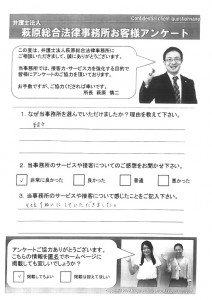 Confidential client questionnaire
弁護士法人
萩原総合法律事務所お客様アンケート
この度は、弁護士法人萩原総合法律事務所に
ご相談いただきまして、誠にありがとうございます。
当事務所では、接客力・サービス力を強化する目的で
皆様にアンケートのご協力を頂いております。
お手数ですが、ご協力くだされば幸いです。
所長 萩原 慎二
1. なぜ当事務所を選んでいただけましたか？理由を教えて下さい。
2. 当事務所のサービスや接客についてのご感想をお聞かせ下さい。
非常に良かった 良かった 普通 悪かった
3. 当事務所のサービスや接客について感じたことをご記入下さい。
アンケートご協力ありがとうございます。
こちらの情報を匿名でホームページに
掲載しても宜しいでしょうか？
掲載してもよい 掲載は控えてほしい